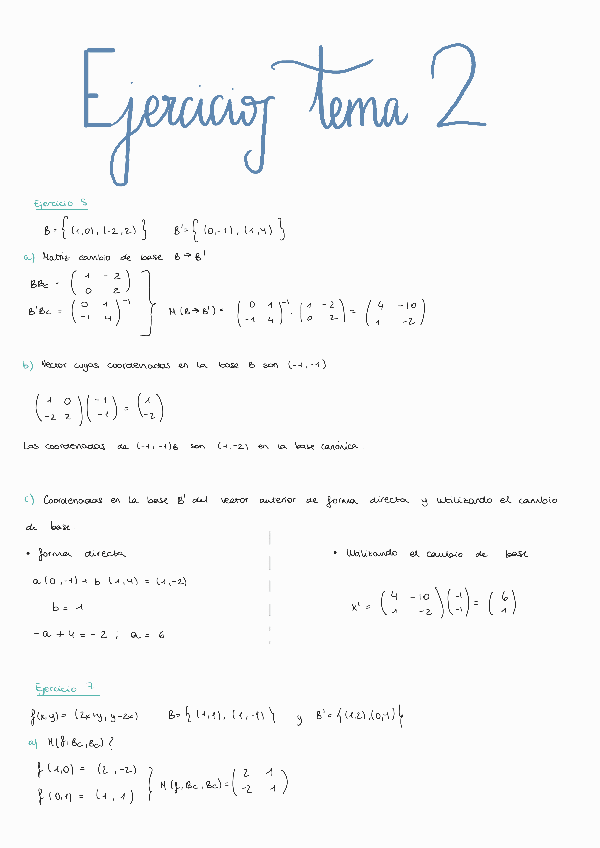 Ejercicios tema 2
Ejercicio 5
B = { (1,0), (-2,2) }   B' = { (0,-1), (1,4) }
a) Matriz cambio de base B → B'
BBc = ( 1 -2 / 0 2 )
B'Bc = ( 0 1 / -1 4 )⁻¹
M (B→B') = ( 0 1 / -1 4 )⁻¹ · ( 1 -2 / 0 2 ) = ( 4 -10 / 1 -2 )
b) Vector cuyas coordenadas en la base B son (-1,-1)
( 1 0 / -2 2 ) ( -1 / -1 ) = ( 1 / -2 )
Las coordenadas de (-1,-1)B son (1,-2) en la base canónica
c) Coordenadas en la base B' del vector anterior de forma directa y utilizando el cambio
de base
• forma directa
a (0,-1) + b (1,4) = (1,-2)
b = 1
-a + 4 = -2 ; a = 6
• Utilizando el cambio de base
x' = ( 4 -10 / 1 -2 ) ( -1 / -1 ) = ( 6 / 1 )
Ejercicio 7
f(x,y) = (2x+y, y-2x)   B = { (1,1), (1,-1) }   y   B' = { (1,2), (0,1) }
a) M(f,Bc,Bc) ?
f (1,0) = (2,-2)
f (0,1) = (1,1)
M (f,Bc,Bc) = ( 2 1 / -2 1 )